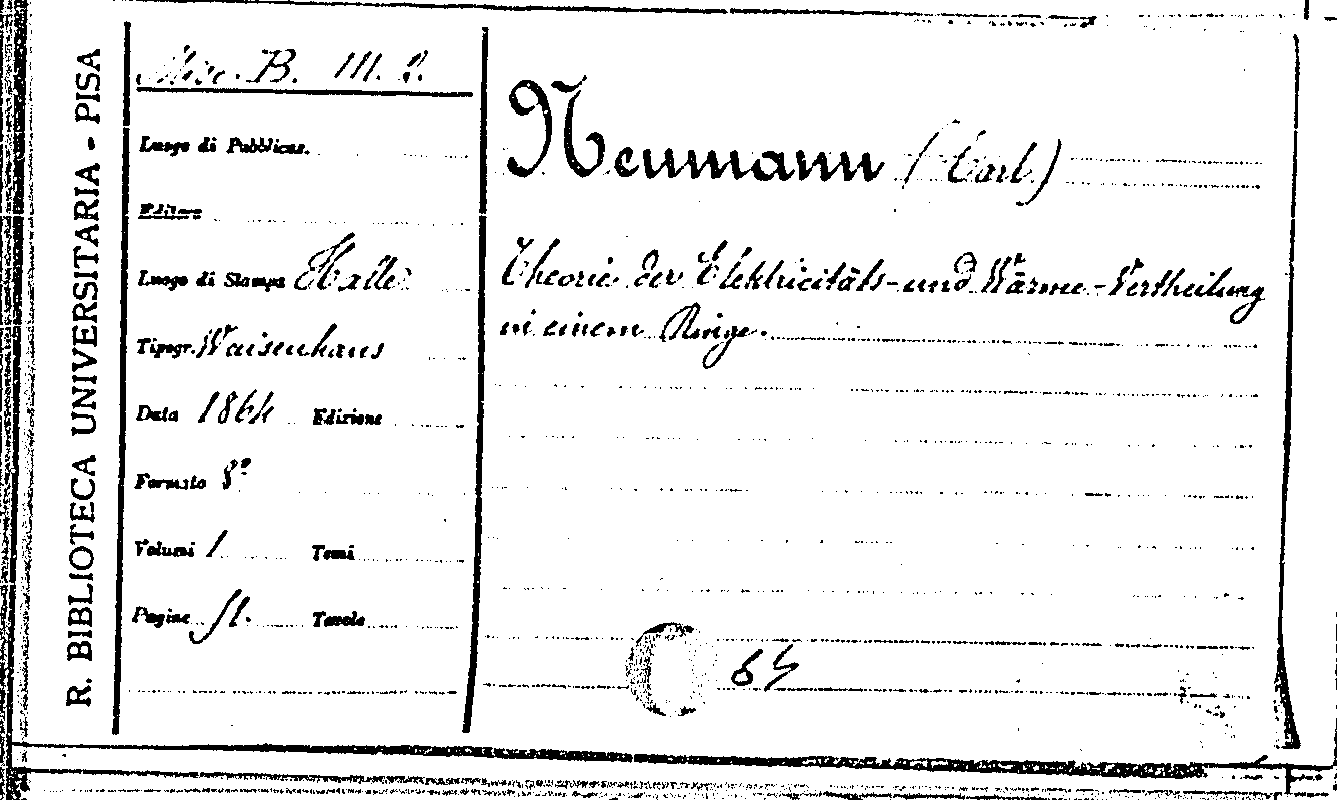 R. BIBLIOTECA UNIVERSITARIA - PISA
Misc. B. III. 2.
Luogo di Pubblicaz.
Editore
Luogo di Stampa Halle
Tipogr. Waisenhaus
Data 1864 Edizione
Formato 8º
Volumi 1 Tomi
Pagine 51. Tavole
Neumann (Carl)
Theorie der Elektricitäts- und Wärme-Vertheilung
in einem Ringe.